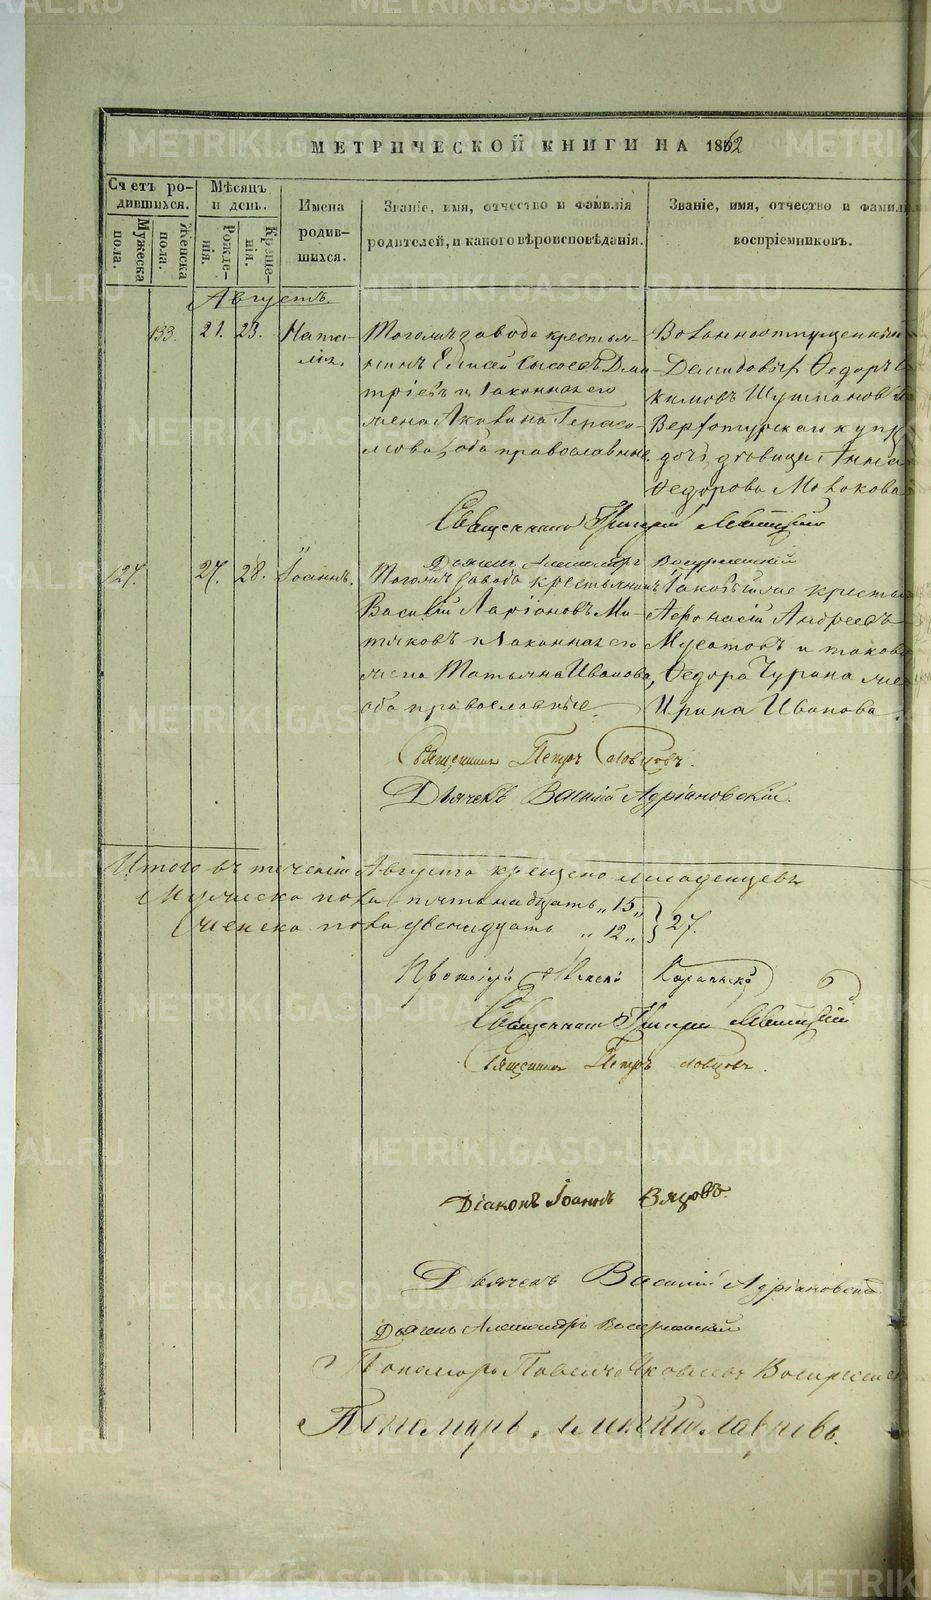 МЕТРИЧЕСКОЙ КНИГИ НА 1862
Счетъ ро-
дившихся.
Мужеска
пола.
Женска
пола.
Мѣсяцъ
и день.
Рожде-
нія.
Креще-
нія.
Имена
родив-
шихся.
Званіе, имя, отчество и фамилія
родителей, и какого вѣроисповѣданія.
Званіе, имя, отчество и фамил
воспріемниковъ.
Августъ.
133. 21. 23. Ната-
лія.
Тогожъ завода крестья-
нинъ Елисей Сысоевъ Дми-
тріевъ и законная его
жена Акилина Гераси-
мова, оба православные.
Вольноотпущенный
Демидовыхъ Ѳедоръ
кимовъ Шутановъ и
Верхотурскаго куп
дочь дѣвица Анна
Ѳедорова
Священникъ Григорій
Дьячекъ Александръ Воскресенскій
127. 27. 28. Іоаннъ.
Тогожъ завода крестьянинъ
Василій Ларіоновъ Ми-
тяковъ и законная его
жена Татьяна Иванова,
оба православные.
Таковыеже кресть
Афонасій Андреевъ
Мусатовъ и таков
Ѳедора Чурина же
Ирина Иванова.
Священникъ Петръ Ловцовъ.
Дьячекъ Василій Адріановскій.
Итого въ теченіи Августа крещено младенцевъ
Мужеска пола пятьнадцать „15„
Женска пола двенадцать „12„ } 27.
Протоіерей Алексій
Священникъ Григорій
Священникъ Петръ Ловцовъ.
Діаконъ Іоаннъ Вязовъ.
Дьячекъ Василій Адріановскій
Дьячекъ Александръ Воскресенскій
Пономарь Павелъ Яковлевъ Воскресенск
Пономарь Алексѣй Лавровъ.
METRIKI.GASO-URAL.RU